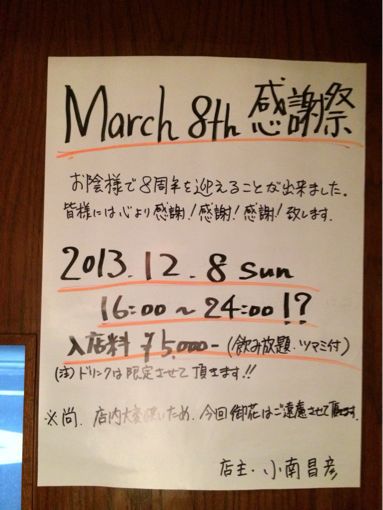 March 8th 感謝祭
お陰様で8周年を迎えることが出来ました。
皆様には心より感謝!感謝!感謝!致します.
2013.12.8 sun
16:00~24:00!?
入店料 ¥5,000-(飲み放題.ツマミ付)
(注)ドリンクは限定させて頂きます!!
※尚、店内大変狭いため、今回御花はご遠慮させて頂きます.
店主・小南昌彦